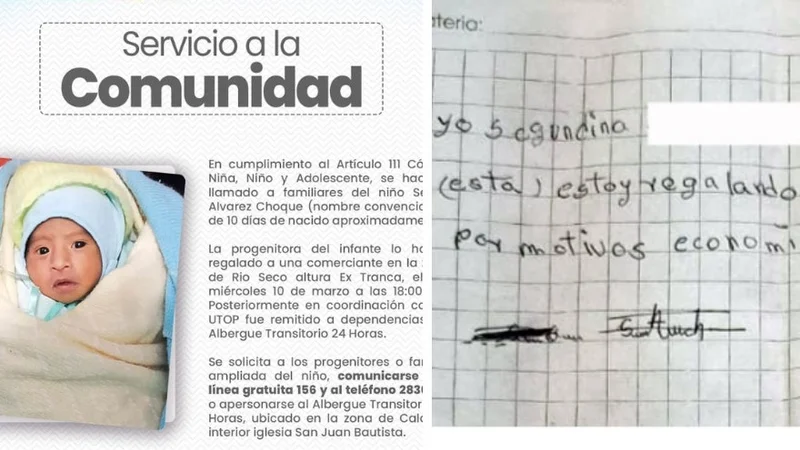 Servicio a la
Comunidad
En cumplimiento al Artículo 111 Có
Niña, Niño y Adolescente, se hac
llamado a familiares del niño Se
Alvarez Choque (nombre convencio
de 10 días de nacido aproximadame
La progenitora del infante lo ho
regalado a una comerciante en la
de Rio Seco altura Ex Tranca, el
miércoles 10 de marzo a las 18:00
Posteriormente en coordinación co
UTOP fue remitido a dependencias
Albergue Transitorio 24 Horas.
Se solicita a los progenitores o far
ampliada del niño, comunicarse
línea gratuita 156 y al teléfono 283
o apersonarse al Albergue Transitor
Horas, ubicado en la zona de Cal
interior iglesia San Juan Bautista.
teria:
yo segundina
(esta) estoy regalando
por motivos economi